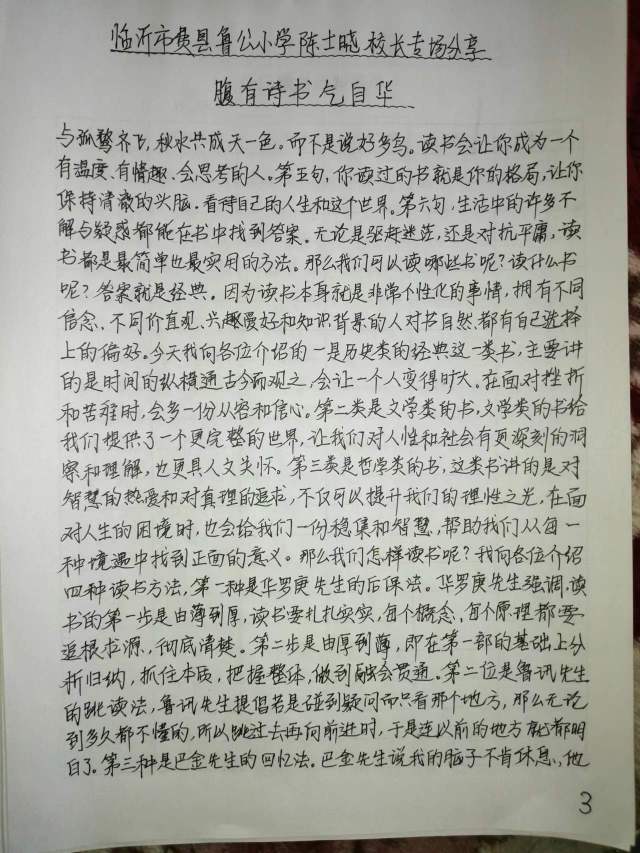 临沂市费县鲁公小学陈士晓校长专场分享
腹有诗书气自华
与孤鹜齐飞,秋水共成天一色。而不是说好多鸟。读书会让你成为一个
有温度、有情趣、会思考的人。第五句,你读过的书就是你的格局,让你
保持清澈的头脑,看待自己的人生和这个世界。第六句,生活中的许多不
解与疑惑都能在书中找到答案。无论是驱赶迷茫,还是对抗平庸,读
书都是最简单也最实用的方法。那么我们可以读哪些书呢?读什么书
呢?答案就是经典。因为读书本身就是非常个性化的事情,拥有不同
信念、不同价直观、兴趣爱好和知识背景的人对书自然都有自己选择
上的偏好。今天我向各位介绍的一是历史类的经典这一类书,主要讲
的是时间的纵横通古今而观之,会让一个人变得旷大。在面对挫折
和苦难时,会多一份从容和信心。第二类是文学类的书,文学类的书给
我们提供了一个更完整的世界,让我们对人性和社会有更深刻的洞
察和理解,也更具人文关怀。第三类是哲学类的书,这类书讲的是对
智慧的热爱和对真理的追求,不仅可以提升我们的理性之光,在面
对人生的困境时,也会给我们一份稳集和智慧,帮助我们从每一
种境遇中找到正面的意义。那么我们怎样读书呢?我向各位介绍
四种读书方法,第一种是华罗庚先生的后保法。华罗庚先生强调,读
书的第一步是由薄到厚,读书要扎扎实实,每个概念,每个原理都要
追根求源,彻底清楚。第二步是由厚到薄,即在第一部的基础上分
析归纳,抓住本质,把握整体,做到融会贯通。第二位是鲁讯先生
的跳读法,鲁讯先生提倡若是碰到疑问而只看那个地方,那么无论
到多久都不懂的,所以跳过去再向前进时,于是连以前的地方就都明
白了。第三种是巴金先生的回忆法。巴金先生说我的脑子不肯休息,他
3